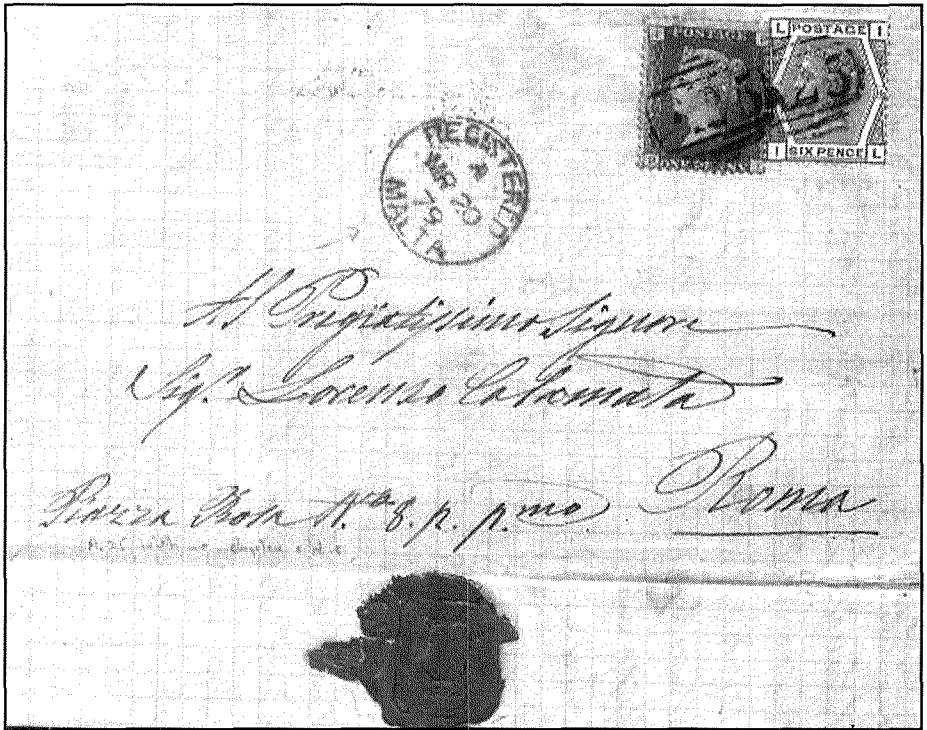 L POSTAGE I
POSTAGE
I SIX PENCE L
REGISTERED
A
MR 20
79
MALTA
Al Pregiatissimo Signore
Sigr. Lorenzo Calamata
Piazza Rosa No. 8. p. p.mo
Roma